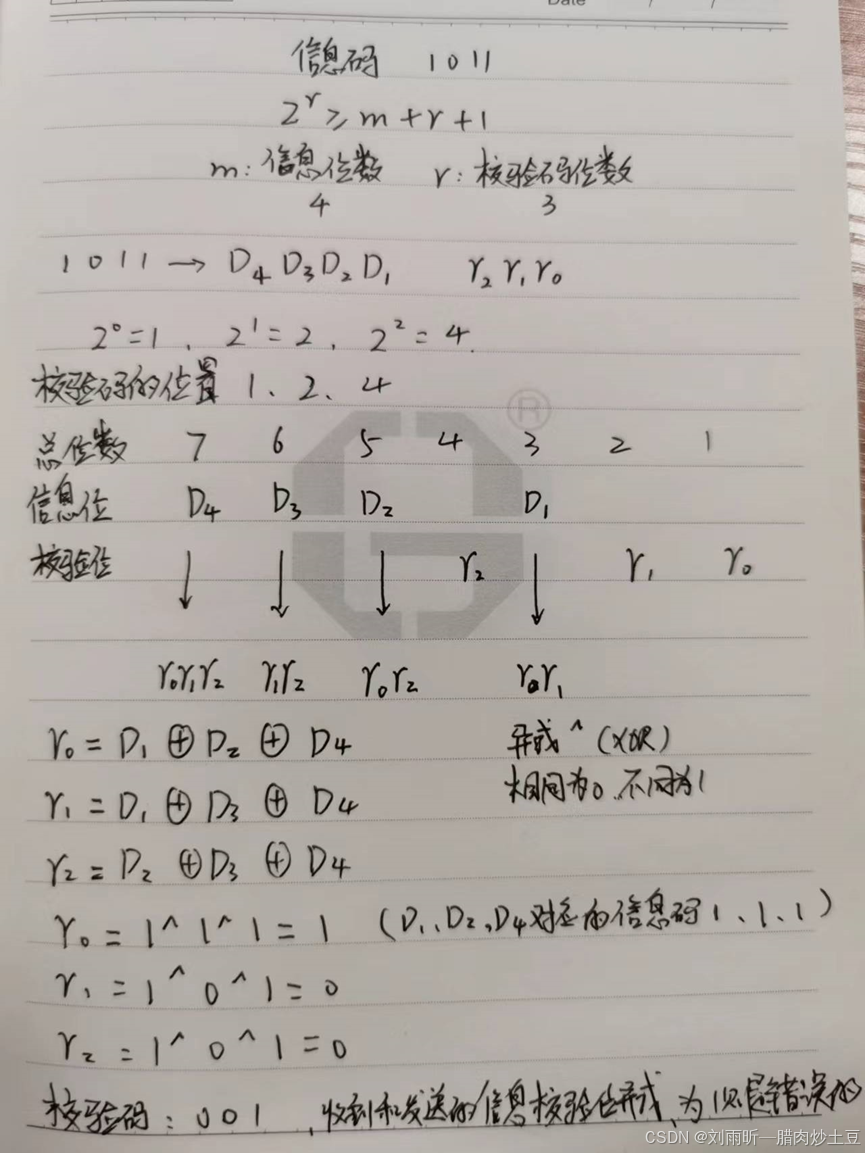 Date / /
信息码 1011
2^r ≥ m + r + 1
m: 信息位数 r: 校验码位数
4 3
1011 → D₄ D₃ D₂ D₁ r₂ r₁ r₀
2⁰=1, 2¹=2, 2²=4.
校验码的位置 1、2、4
总位数 7 6 5 4 3 2 1
信息位 D₄ D₃ D₂ D₁
校验位 ↓ ↓ ↓ r₂ ↓ r₁ r₀
r₀r₁r₂ r₁r₂ r₀r₂ r₀r₁
r₀ = D₁ ⊕ D₂ ⊕ D₄ 异或 ^ (XOR)
r₁ = D₁ ⊕ D₃ ⊕ D₄ 相同为0.不同为1
r₂ = D₂ ⊕ D₃ ⊕ D₄
r₀ = 1^1^1 = 1 (D₁、D₂、D₄对应的信息码1、1、1)
r₁ = 1^0^1 = 0
r₂ = 1^0^1 = 0
校验码: 001 ,收到和发送的信息校验位异或,为1的是错误的
®
CSDN @刘雨昕—腊肉炒土豆